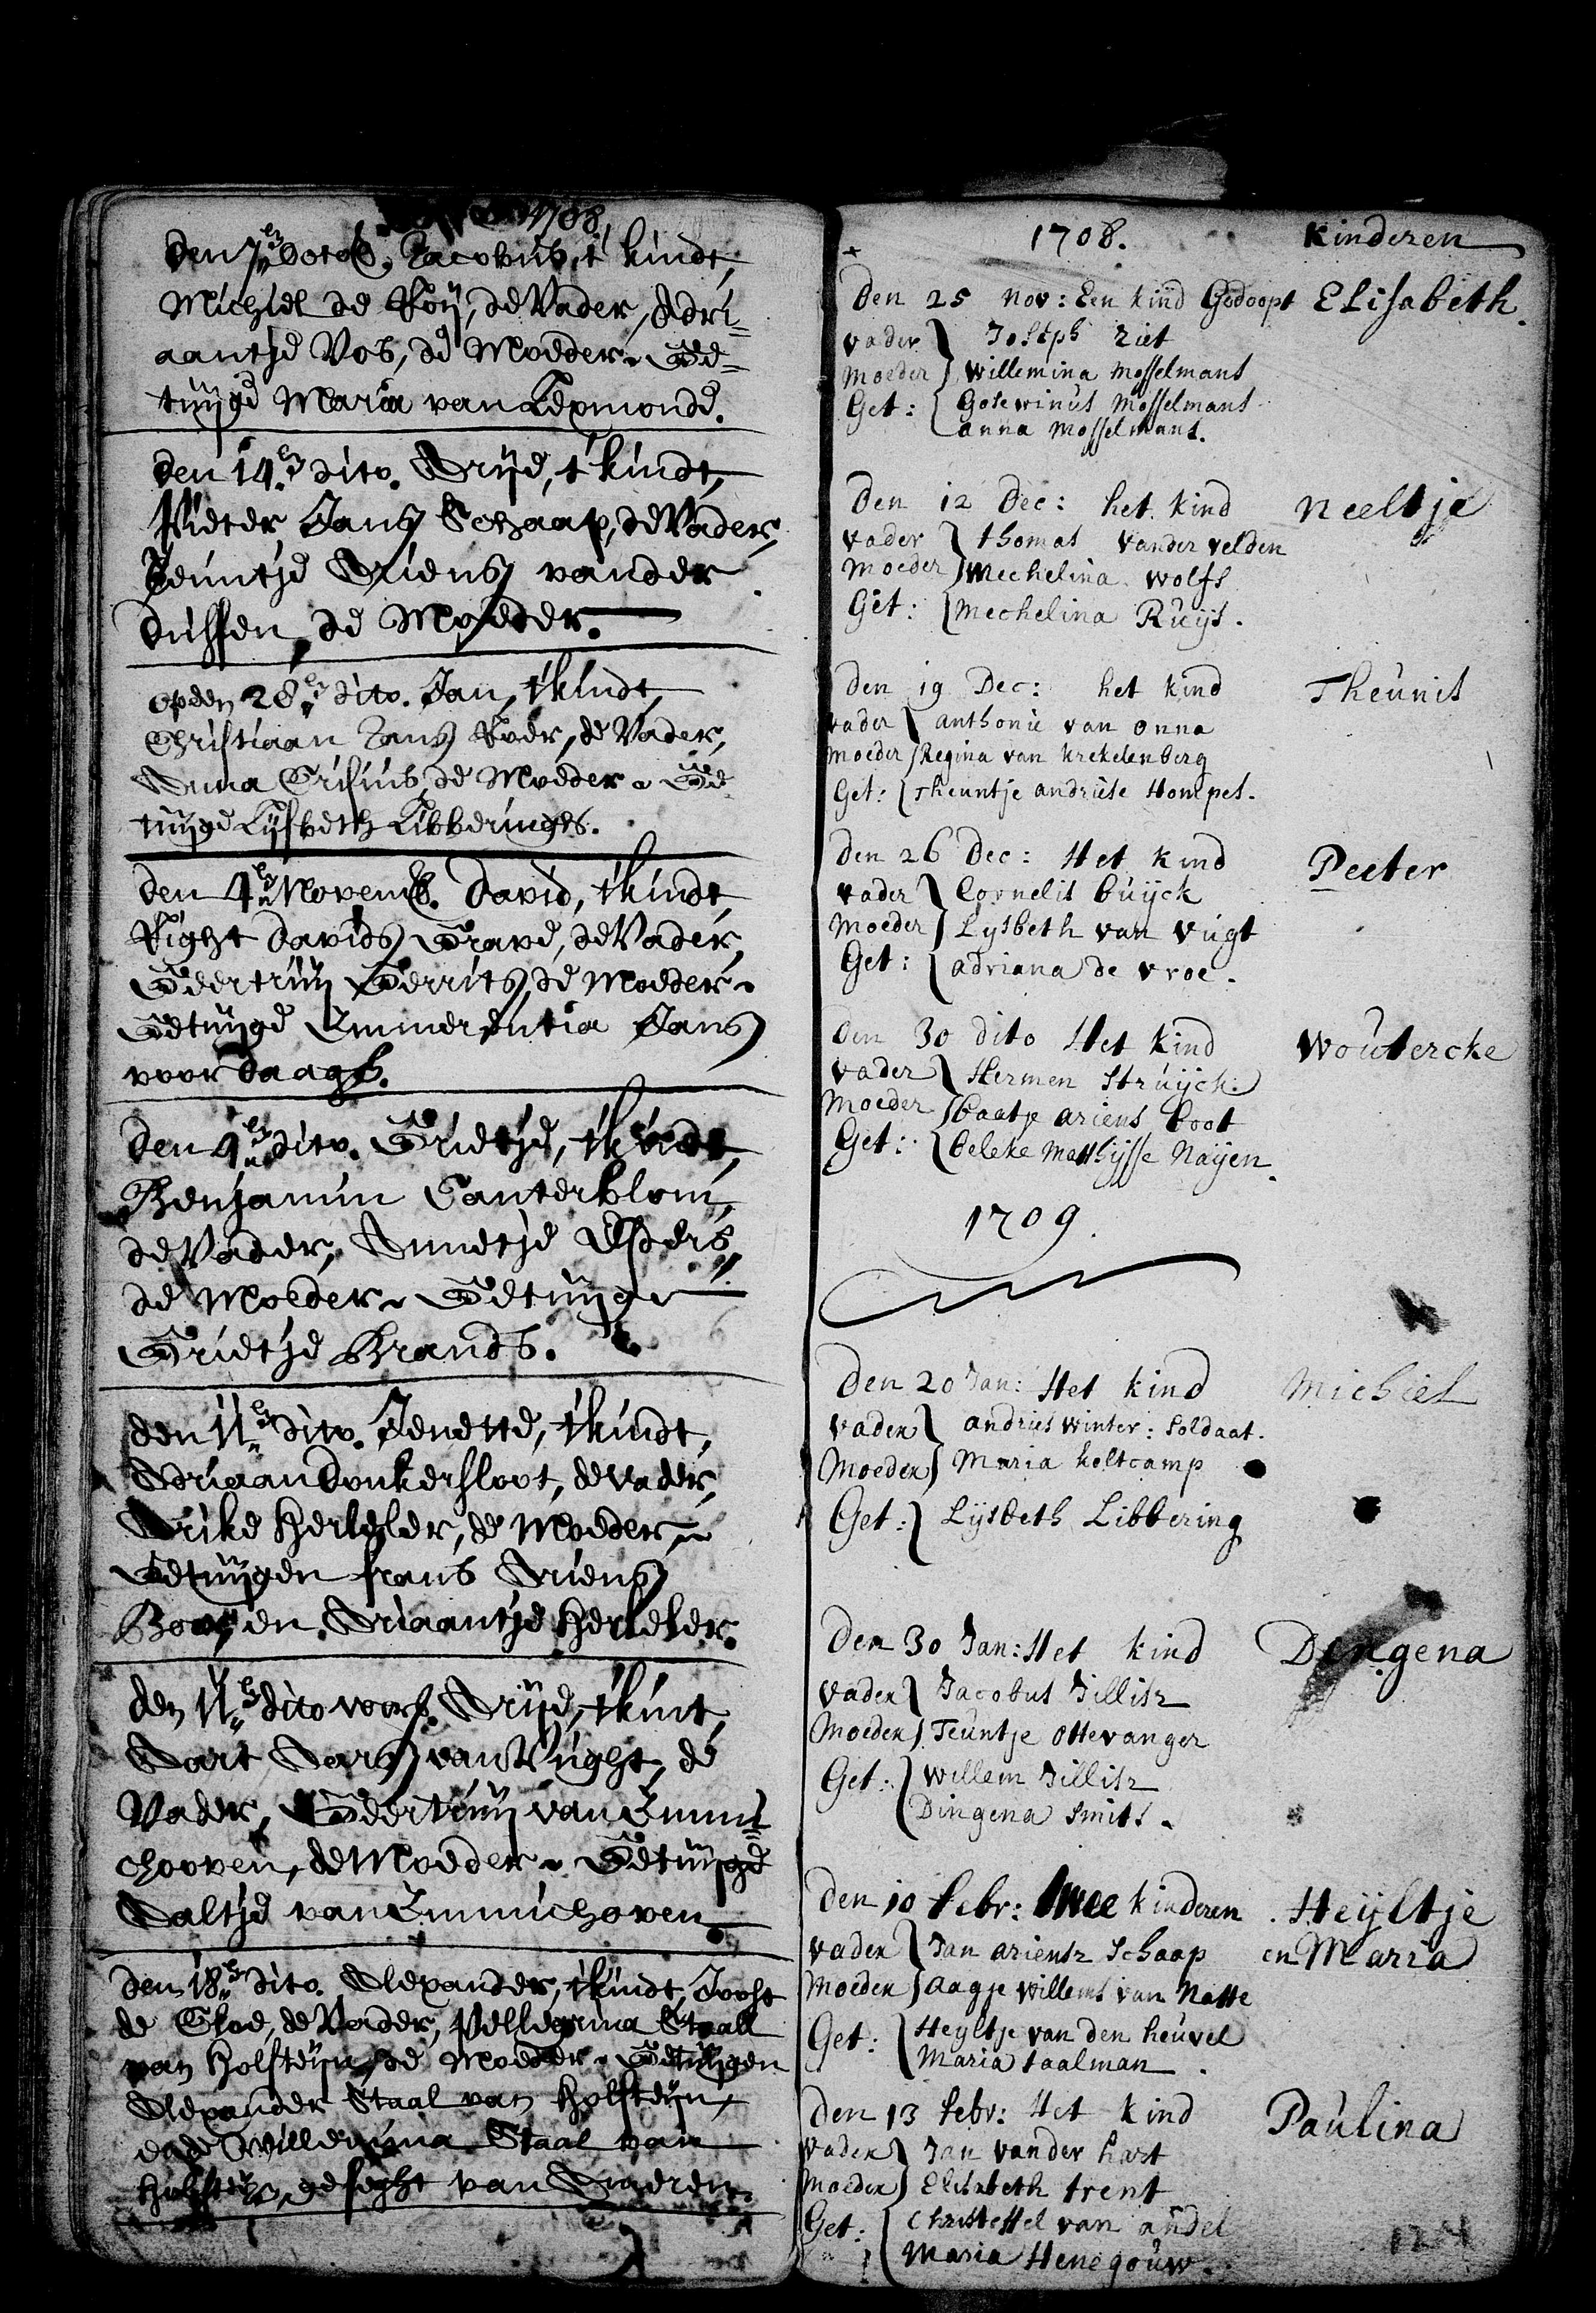 1708.
den 7en Octob. Jacobus, t' kindt,
Michiel de Roij, de Vader, Adri=
aantje Vos, de Moeder. Ge=
tuijge Maria van Lexmonde.
den 14en dito. Arije, t' kindt,
Pieter Jans Schaap, de Vader,
Teuntje Ariens vander
Dussen, de Moeder.
op den 28en dito. Jan, t' kindt,
Christiaan Jans de Vader,
Anna de Moeder. Ge
tuijge Lijsbeth Libberinghs.
den 4en Novemb. David, t' kindt,
Right Davids Grave, de Vader,
Geertruij Gerrits, de Moeder.
Getuijge Emmerentia Jans
voor Daags.
den 9en dito. Grietje, t' kindt,
Benjamin Canterblom,
de Vader, Annetje
de Moeder. Getuijge
Grietje Brands.
den 11en dito. Jenette, t' kindt,
Adriaan Donkersloot, de Vader,
Arike Herlseler, de Moeder.
Getuijgen frans Ariens
Ariaantje
den 11en dito voors. Arije, t' kint,
Aart Aars van Vught, de
Vader, Geertruij van Emmi=
chooven, de Moeder. Getuijge
Aaltje van Emmichoven.
den 18en dito. Alexander, t' kindt, Joost
de de Vader, Pellegrina Staall
van Holsteijn, de Moeder. Getuijgen
Alexander Staal van Holsteijn,
ende Willemina Staal van
Holsteijn, geseght van Anderen.
1708. Kinderen
Den 25 nov: Een kind Gedoopt Elisabeth.
vader } Joseph Ziet
Moeder } Willemina Mosselmans
Get: { Gosewinus Mosselmans
anna Mosselmans.
Den 12 Dec: het kind Neeltje
vader } thomas vander velden
Moeder } Mechelina Wolfs
Get: { Mechelina Ruijs.
Den 19 Dec: het kind Theunis
vader } anthonie van onna
Moeder } Regina van krekelenberg
Get: { Theuntje andriese Hompes.
Den 26 Dec: Het kind Peeter
vader } Cornelis Buijck
Moeder } Lysbeth van Vugt
Get: { adriana de vroe.
Den 30 dito Het kind Woutercke
vader } Hermen Struijck.
Moeder } Baatje ariens Coot
Get: { Celeke Matthijsse Naijen.
1709.
Den 20 Jan: Het kind Michiel
vader } andries Winter: Soldaat.
Moeder } Maria holtcamp
Get: } Lijsbeth Libbering
Den 30 Jan: Het kind Dingena
vader } Jacobus Jillisz
Moeder } Teuntje Ottevanger
Get: } Willem Jillisz
Dingena Smits.
Den 10 febr: twee kinderen Heijltje
vader } Jan ariensz Schaap en Maria
Moeder } Aagje Willems van Natte
Get: { Heyltje van den heuvel
Maria taalman
Den 13 febr: Het kind Paulina
Vader } Jan vander hart
Moeder } Elisabeth trent
Get: { Christoffel van andel
Maria Henegouw.
124